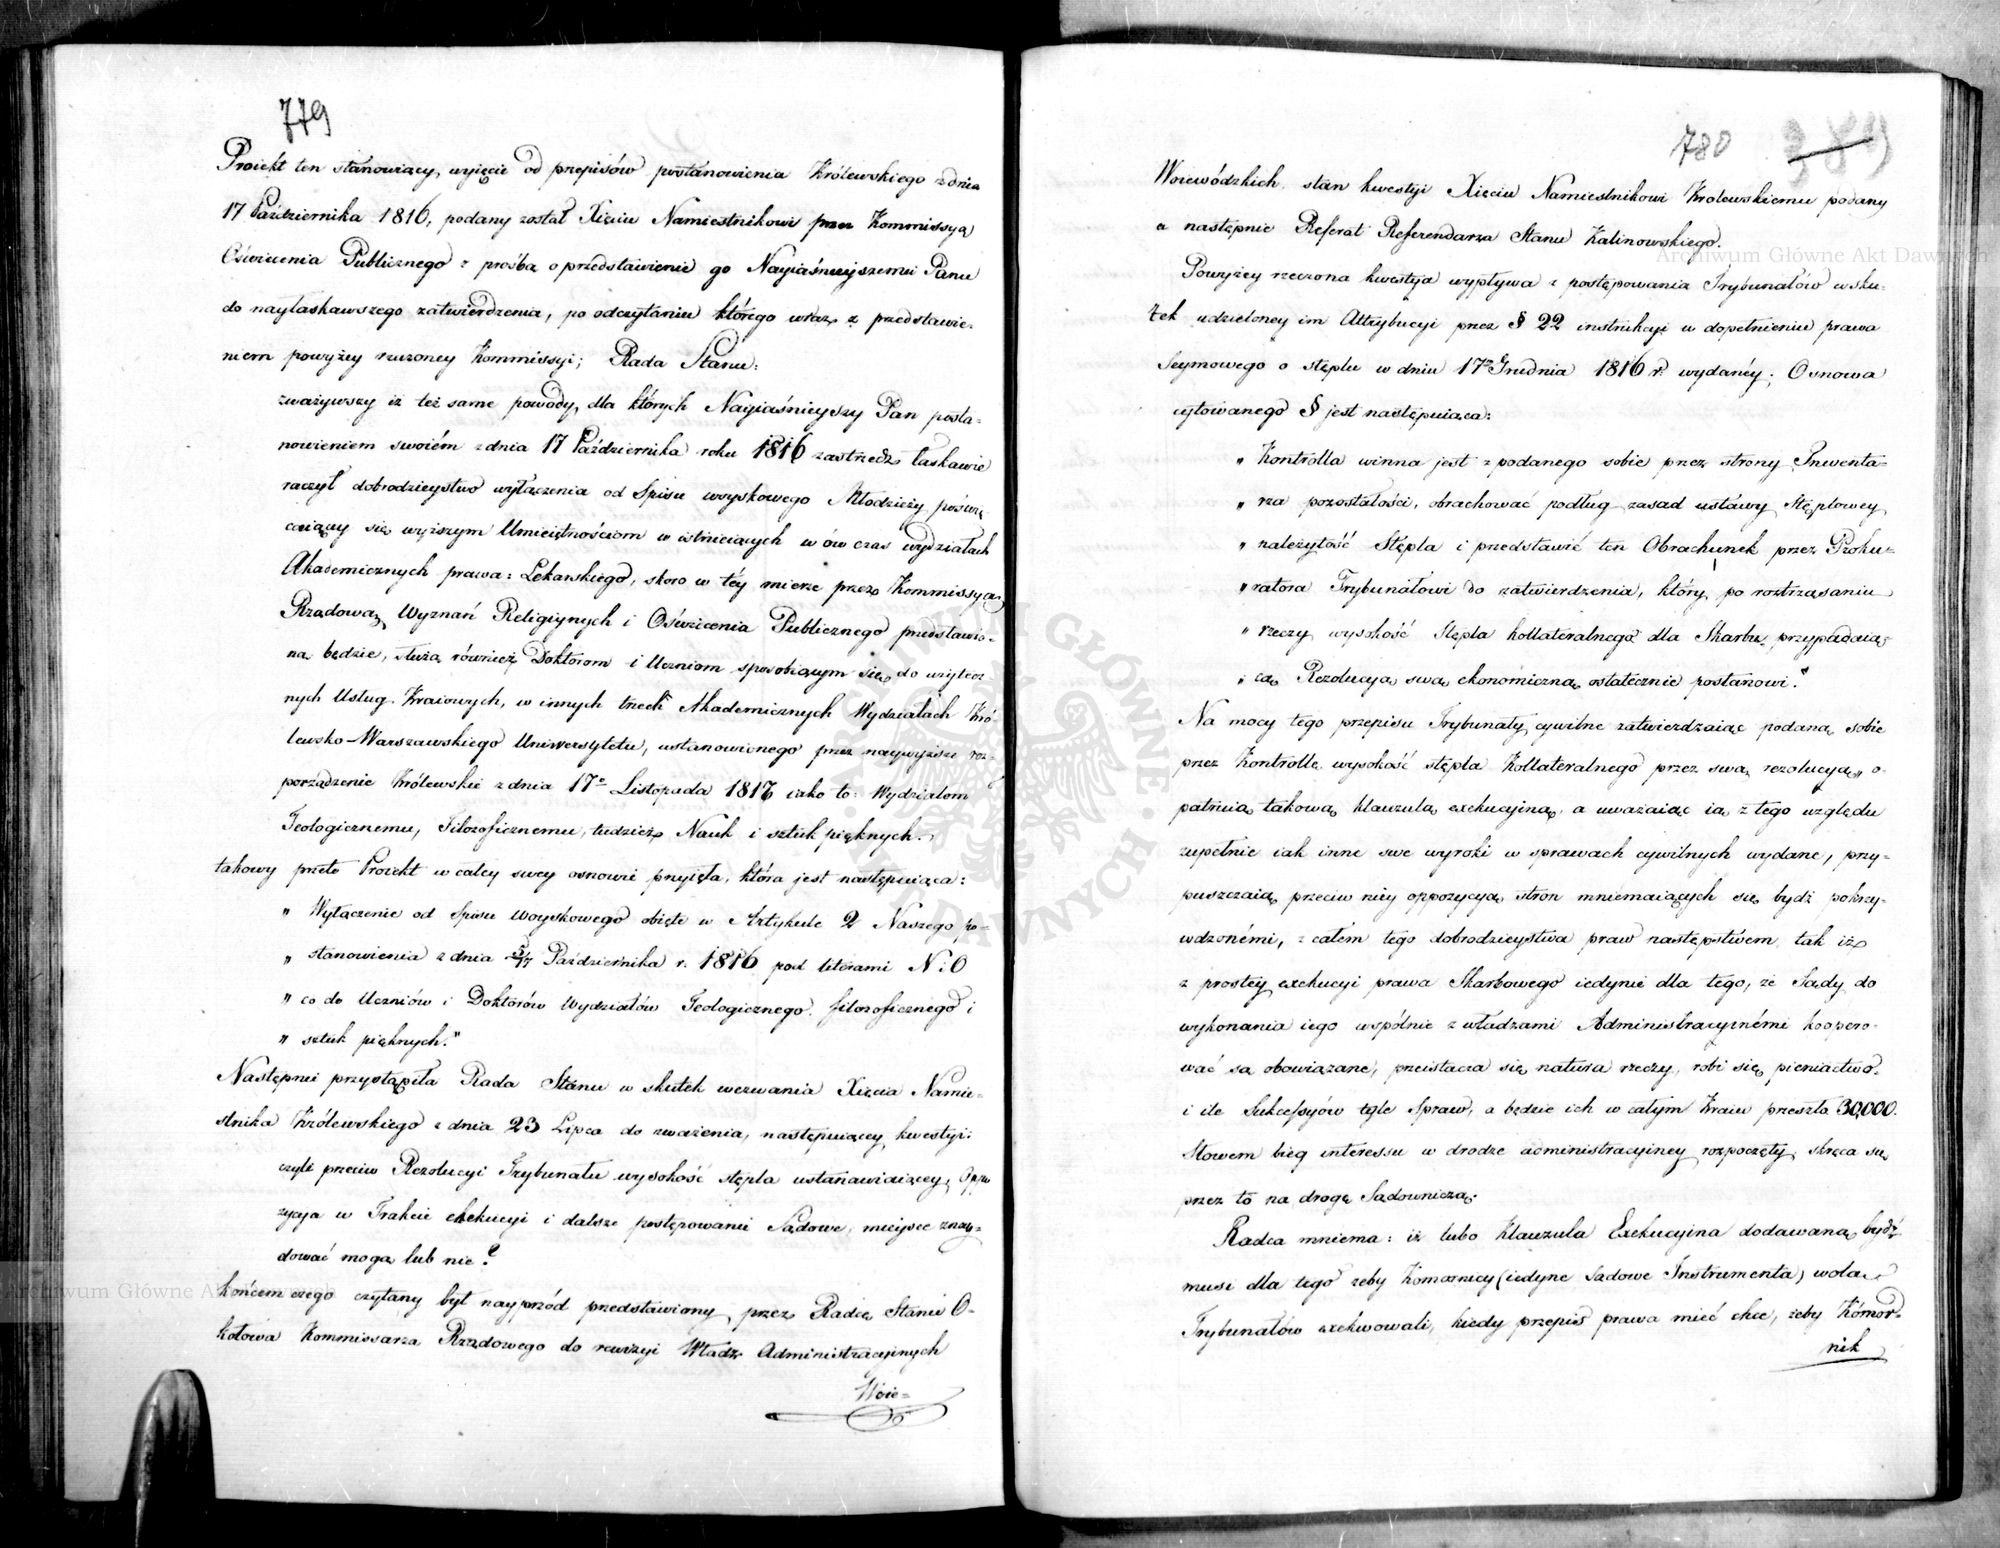 779
Proiekt ten stanowiący, wyięcie od przepisów postanowienia Królewskiego z dnia
17 Października 1816, podany został Xięciu Namiestnikowi przez Kommissyą
Oświecenia Publicznego z prośbą o przedstawienie go Nayiaśnieyszemu Panu
do naylaskawszego zatwierdzenia, po odczytaniu którego wraz z przedstawie-
niem powyżey rzeczoney Kommissyi; Rada Stanu:
zważywszy iż też same powody, dla których Nayiaśnieyszy Pan posta-
nowieniem swoiém z dnia 17 Października roku 1816 zastrzedz łaskawie
raczył dobrodzieystwo wyłączenia od Spisu woyskowego Młodzieży poświę
caiący się wyższym Umieiętnościom w istnieiących w ów czas wydziałach
Akademicznych prawa: Lekarskiego, skoro w téy mierze przez Kommissyą
Rządową Wyznań Religiynych i Oświecenia Publicznego przedstawio-
ną będzie, służą również Doktorom i Uczniom sposobiącym się do użytecz-
nych Usług Kraiowych, w innych trzech Akademicznych Wydziałach Kró-
lewsko-Warszawskiego Uniwersytetu, ustanowionego przez naywyższe roz-
porządzenie Królewskie z dnia 17o Listopada 1817 iako to: Wydziałom
Teologicznemu, Filozoficznemu, tudzież Nauk i sztuk pięknych.
takowy przeto Proiekt w całey swey osnowie przyięła, która jest następuiąca:
„ Wyłączenie od Spisu woyskowego obięte w Artykule 2 Naszego po-
„ stanowienia z dnia 5/17 Października r. 1816 pod literami N: O
„ co do Uczniów i Doktorów Wydziałów Teologicznego, filozoficznego i
„ sztuk pięknych."
Następnie przystąpiła Rada Stanu w skutek wezwania Xięcia Namie-
stnika Królewskiego z dnia 23 Lipca do zważenia, następuiącey kwestyi:
czyli przeciw Rezolucyi Trybunału wysokość stępla ustanawiaiącey, Oppo
zycya w Trakcie exekucyi i dalsze postępowanie Sądowe, mieysce znay-
dować mogą lub nie?
końcem czego czytany był nayprzód przedstawiony przez Radcę Stanu O-
kołowa Kommissarza Rządowego do rewizyi Władz Administracyinych
Woie-
780 389
Woiewódzkich, stan kwestyi Xięciu Namiestnikowi Krolewskiemu podany
a następnie Referat Referendarza Stanu Kalinowskiego.
Powyżey rzeczona kwestya wypływa z postępowania Trybunałów w sku-
tek udzieloney im Attrybucyi przez § 22 instrukcyi w dopełnieniu prawa
Seymowego o stęplu w dniu 17o Grudnia 1816 r. wydanéy; Osnowa
cytowanego § jest następuiąca:
„ Kontrolla winna jest z podanego sobie przez strony Inwenta-
„ rza pozostałości, obrachować podług zasad ustawy Stęplowey
„ należytość Stępla i przedstawić ten Obrachunek przez Proku-
„ ratora Trybunałowi do zatwierdzenia, który po roztrząsaniu
„ rzeczy, wysokość Stępla kollateralnego dla Skarbu przypadaią-
„ cą, Rezolucyą swą ekonomiczną ostatecznie postanowi."
Na mocy tego przepisu Trybunały cywilne zatwierdzaiąc podaną sobie
przez Kontrollę wysokość stępla Kollateralnego przez swą rezolucyą, o-
patruią takową klauzulą exekucyiną, a uważaiąc ią z tego względu
zupełnie iak inne swe wyroki w sprawach cywilnych wydane, przy-
puszczaią przeciw niéy oppozycyą stron mniemaiących się bydź pokrzy-
wdzonémi, z całem tego dobrodzieystwa praw następstwem, tak iż
z prostey exekucyi prawa Skarbowego iedynie dla tego, że Sądy do
wykonania iego wspólnie z władzami Administracyinémi koopero-
wać są obowiązane, przeistacza się natura rzeczy, robi się pieniactwo.
i ile Sukcessyów tyle Spraw, a będzie ich w całym Kraiu przeszło 30,000.
Słowem bieg interessu w drodze administracyiney rozpoczęty, skręca się
przez to na drogę Sądowniczą.
Radca mniema: iż lubo Klauzula Exekucyina dodawaną bydź
musi dla tego żeby Komornicy (iedyne Sądowe Instrumenta) wolą
Trybunałów exekwowali, kiedy przepis prawa mieć chce, żeby Kómor-
nik
Archiwum Główne Akt Dawnych
Archiwum Główne Akt Dawnych
ARCHIWUM GŁÓWNE AKT DAWNYCH